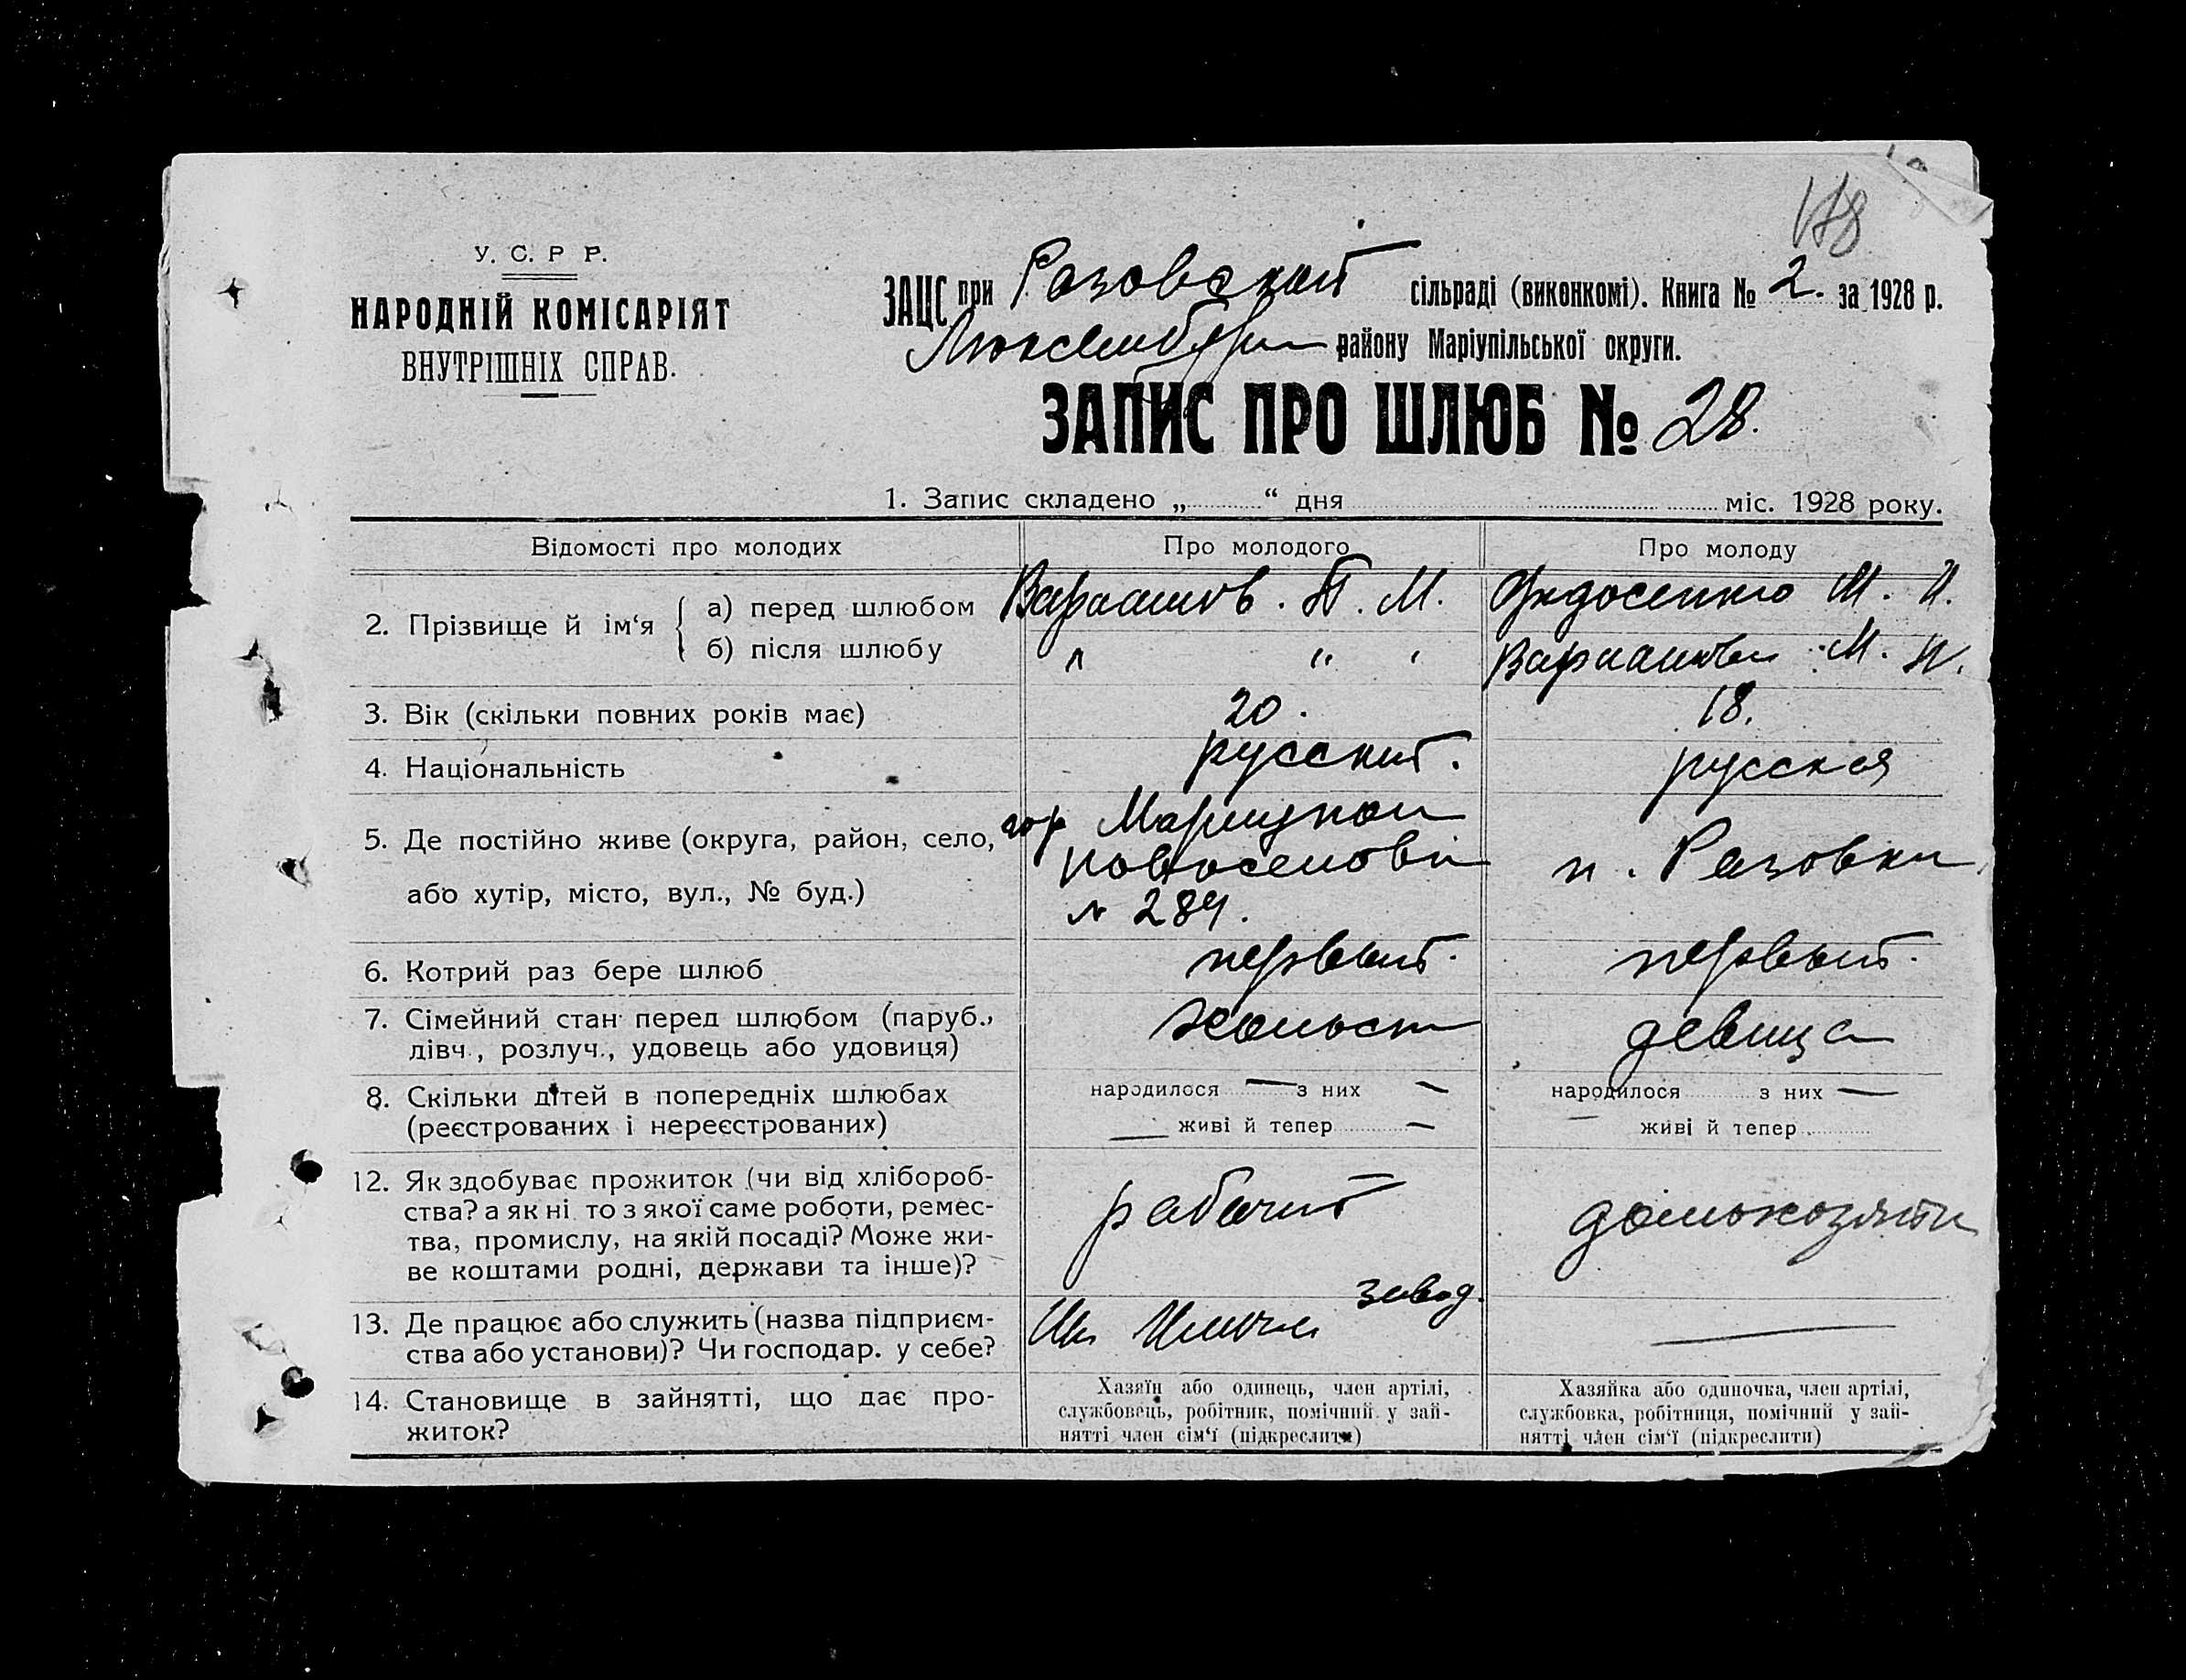 178
У. С. Р Р.
НАРОДНІЙ КОМІСАРІЯТ
ВНУТРІШНІХ СПРАВ.
ЗАЦС при Розовский сільраді (виконкомі). Книга № 2. за 1928 р.
Люксембург району Маріупільської округи.
ЗАПИС ПРО ШЛЮБ № 28.
1. Запис складено „ “ дня міс. 1928 року.
Відомості про молодих Про молодого Про молоду
2. Прізвище й ім‘я а) перед шлюбом П. М. М. И.
б) після шлюбу " " " М. И.
3. Вік (скільки повних років має) 20. 18.
4. Національність русский. русская
5. Де постійно живе (округа, район, село, або хутір, місто, вул., № буд.) гор Мариуполь
новоселовка п. Розовка
№ 284.
6. Котрий раз бере шлюб первый. первый.
7. Сімейний стан перед шлюбом (паруб., дівч., розлуч., удовець або удовиця) холост девица
8. Скільки дітей в попередніх шлюбах народилося — з них — народилося з них —
(реєстрованих і нереєстрованих) — живі й тепер — — живі й тепер
12. Як здобуває прожиток (чи від хлібороб-
ства? а як ні то з якої саме роботи, ремес- рабочий домохозяйка
тва, промислу, на якій посаді? Може жи-
ве коштами родні, держави та інше)?
13. Де працює або служить (назва підприєм- завод.
ства або установи)? Чи господар. у себе? Им Ильича —
14. Становище в зайнятті, що дає про-
житок?
Хазяїн або одинець, член артілі,
службовець, робітник, помічний у зай-
нятті член сім‘ї (підкреслити)
Хазяйка або одиночка, член артілі,
службовка, робітниця, помічний у зай-
нятті член сім‘ї (підкреслити)